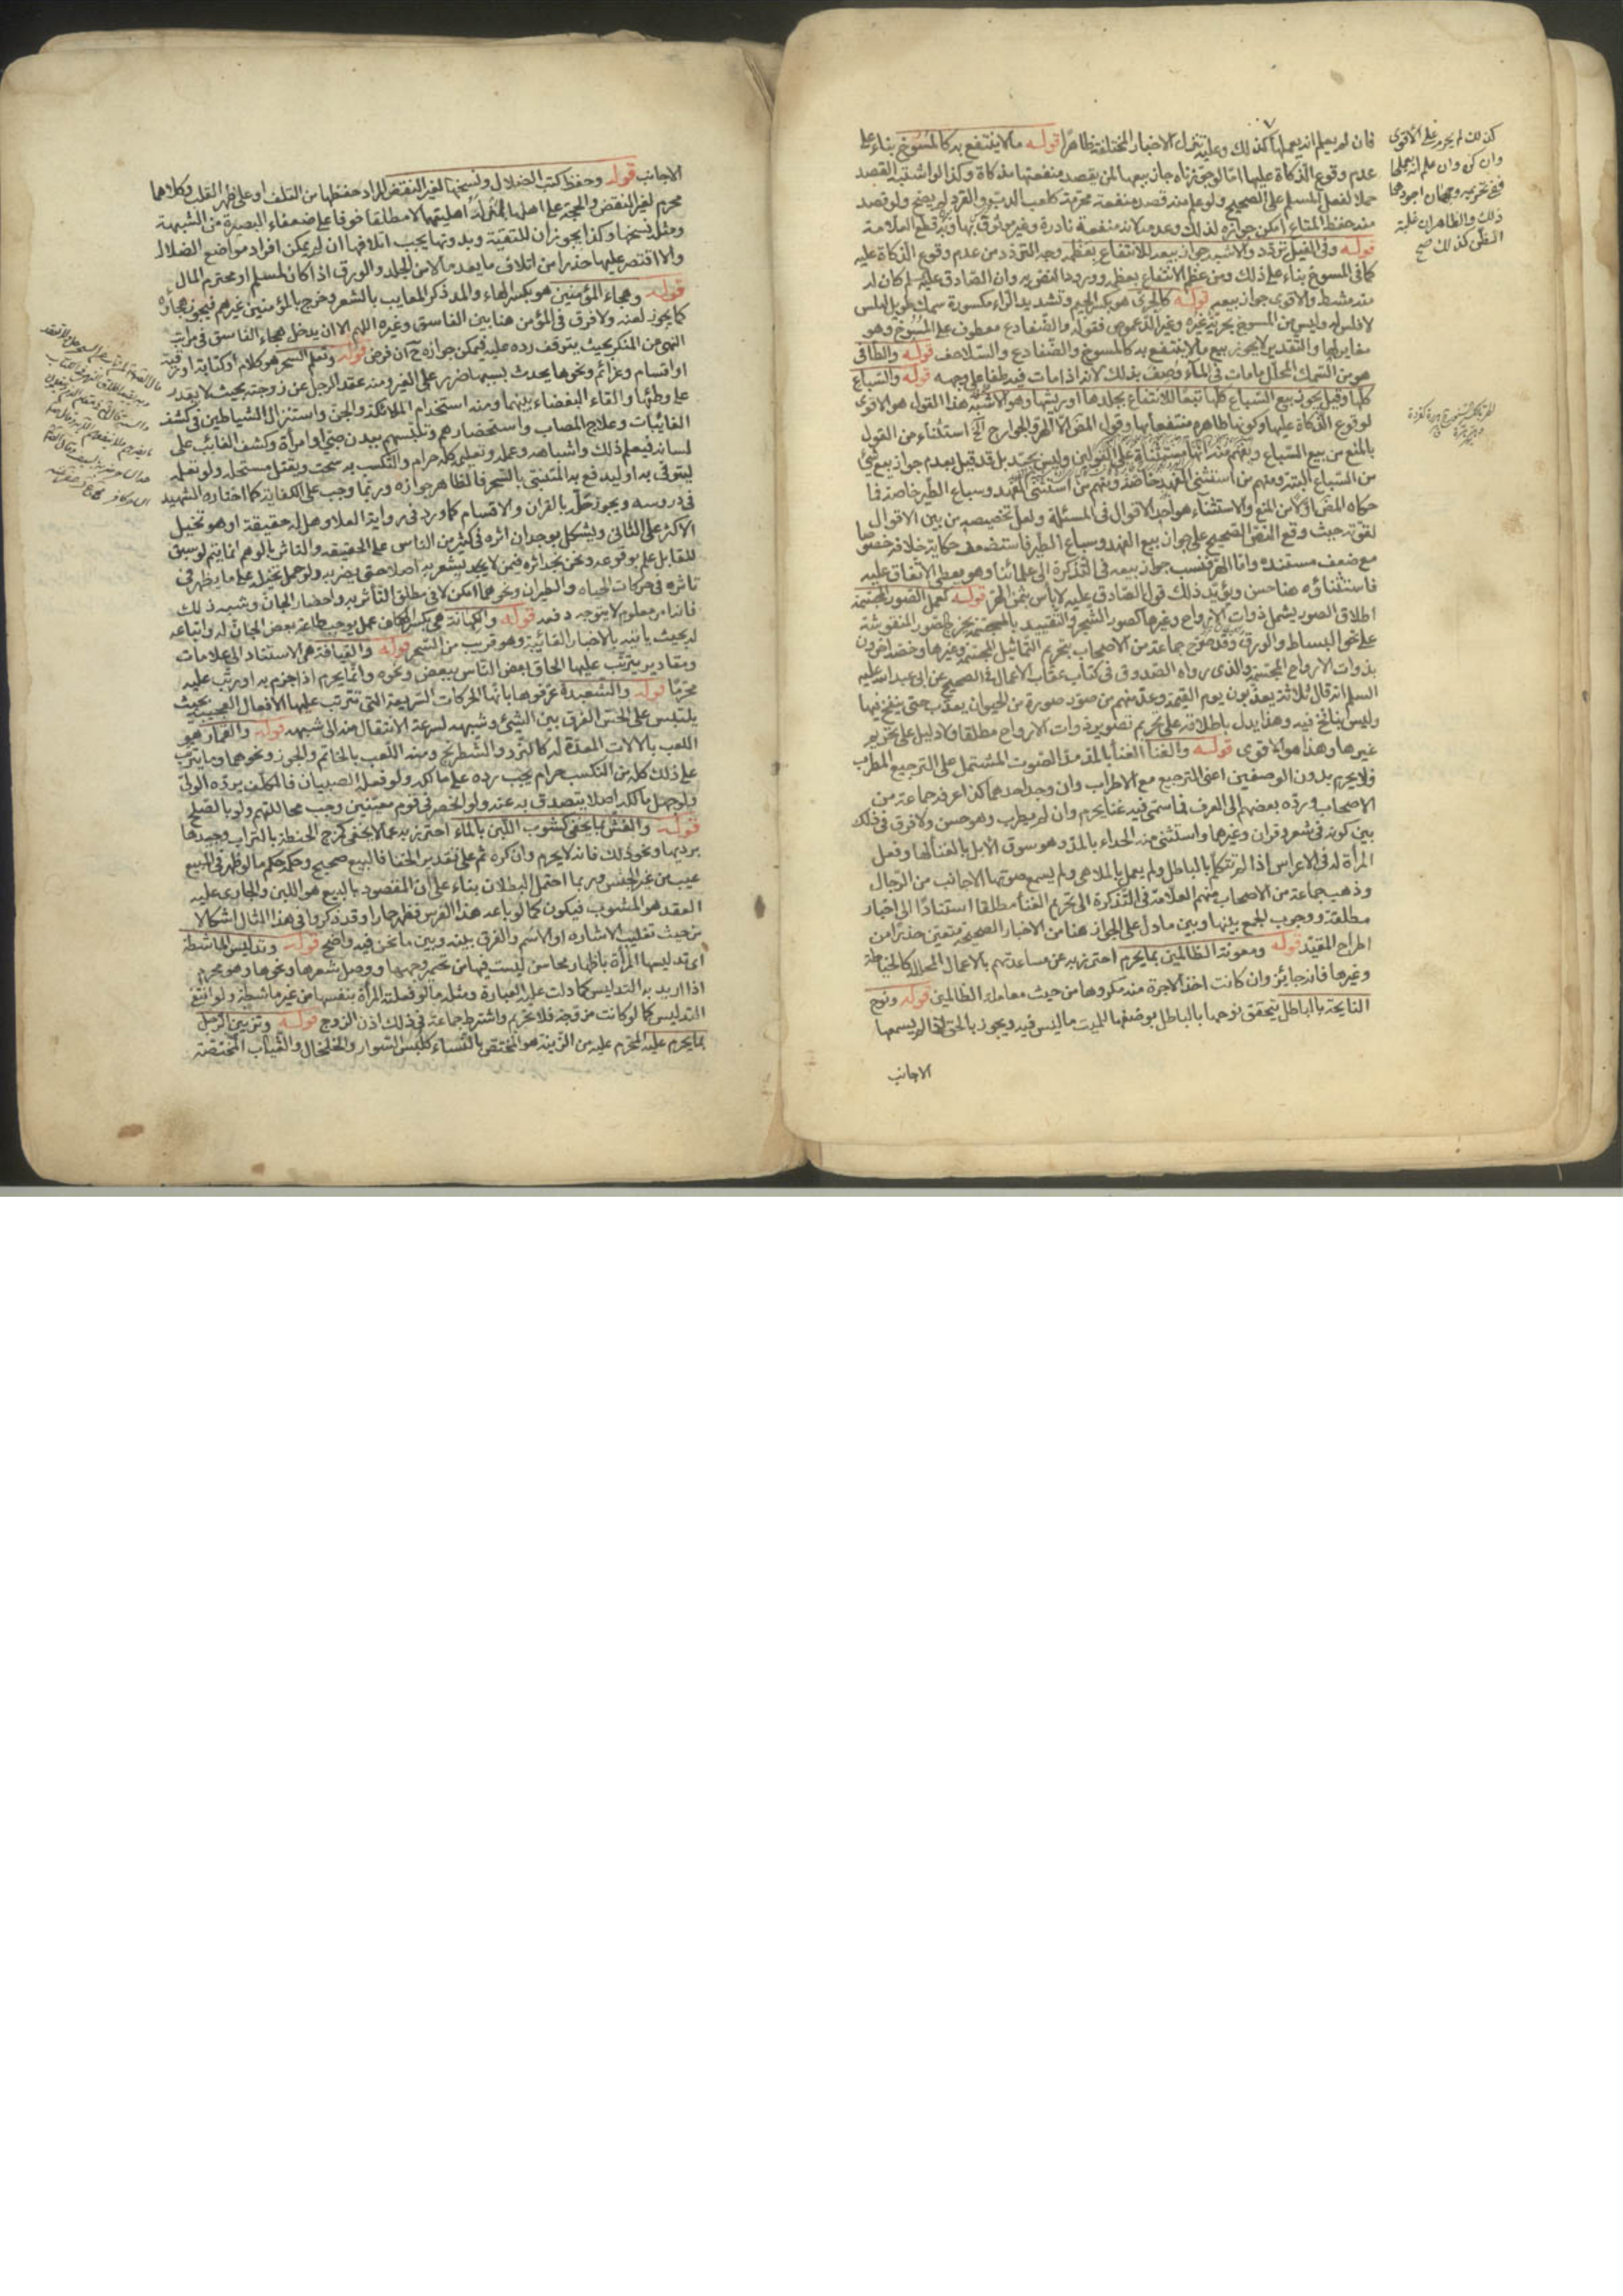 فان لم يعلم انه يعملها كذلك وعليه تتنزل الاخبار المختلفة ظاهرا قوله مالا ينتفع به كالمسوخ بناء على
عدم وقوع الذكاة عليها اما لو جوزناه جاز بيعها لمن يقصد منفعتها مذكاة وكذا لو اشتبه القصد
حملا لفعل المسلم على الصحيح ولو علم منه قصد منفعة محرمة كلعب الدب والقرد لم يصح ولو قصد
منه حفظ المتاع امكن جوازه لذلك وعدمه لانه منفعة نادرة وغير موثوق بها وبه قطع العلامة
قوله وفي الفيل تردد والاشبه جواز بيعه للانتفاع بعظمه وجه التردد من عدم وقوع الذكاة عليه
كما في المسوخ بناء على ذلك ومن عظم الانتفاع بعظمه وورود النص به وان الصادق عليه السلم كان له
منه مشط والاقوى جواز بيعه قوله كالجري هو بكسر الجيم وتشديد الراء مكسورة سمك طويل املس
لا فلس له وليس من المسوخ بحرية غيره وغير الدعموص فقوله والضفادع معطوف على المسوخ وهو
مغاير لها والتقدير لا يجوز بيع مالا ينتفع به كالمسوخ والضفادع والسلاحف قوله والطافي
هو من السمك المحلل ما مات في الماء وصف بذلك لانه اذا مات فيه طفا على وجهه قوله والسباع
كلها وقيل يجوز بيع السباع كلها تبعا للانتفاع بجلدها او ريشها وهو الاشبه هذا القول هو الاقوى
لوقوع الذكاة عليها وكونها طاهرة منتفعا بها وقول المص الا الهر والجوارح الخ استثناء من القول
بالمنع من بيع السباع
من السباع البتة ومنهم من استثنى الفهد خاصة ومنهم من استثنى الفهد وسباع الطير خاصة فما
حكاه المص اولا من المنع والاستثناء هو احد الاقوال في المسئلة ولعل تخصيصه من بين الاقوال
لقوته حيث وقع النص الصحيح على جواز بيع الفهد وسباع الطير فاستضعف حكاية خلافه خصوصا
مع ضعف مستنده واما الهر فنسب جواز بيعه في التذكرة الى علمائنا وهو يعطي الاتفاق عليه
فاستثناؤه هنا حسن ويؤيد ذلك قول الصادق عليه لا باس بثمن الهر قوله كعمل الصور المجسمة
اطلاق الصور يشمل ذوات الارواح وغيرها كصور الشجر والتقييد بالمجسمة يخرج الصور المنقوشة
على نحو البساط والورق وقد صرح جماعة من الاصحاب بتحريم التماثيل المجسمة وغيرها وخصه اخرون
بذوات الارواح المجسمة والذي رواه الصدوق في كتاب عقاب الاعمال في الصحيح عن ابي عبد الله عليه
السلم انه قال ثلاثة يعذبون يوم القيمة وعد منهم من صور صورة من الحيوان يعذب حتى ينفخ فيها
وليس بنافخ فيه وهذا يدل باطلاقه على تحريم تصوير ذوات الارواح مطلقا ولا دليل على تحريم
غيرها وهذا هو الاقوى قوله والغناء الغناء بالمد مد الصوت المشتمل على الترجيع المطرب
فلا يحرم بدون الوصفين اعني الترجيع مع الاطراب وان وجد احدهما كذا عرفه جماعة من
الاصحاب ورده بعضهم الى العرف فما سمي فيه غناء يحرم وان لم يطرب وهو حسن ولا فرق في ذلك
بين كونه في شعر وقران وغيرهما واستثنى منه الحداء بالمد وهو سوق الابل بالغناء لها وفعل
المراة له في الاعراس اذا لم تتكلم بالباطل ولم يعمل بالملاهي ولم يسمع صوتها الاجانب من الرجال
وذهب جماعة من الاصحاب منهم العلامة في التذكرة الى تحريم الغناء مطلقا استنادا الى اخبار
مطلقة ووجوب الجمع بينها وبين ما دل على الجواز هنا من الاخبار الصحيحة متعين حذرا من
اطراح المقيد قوله ومعونة الظالمين بما يحرم احترز به عن مساعدتهم بالاعمال المحللة كالخياطة
وغيرها فانه جائز وان كانت اخذ الاجرة منه مكروها من حيث معاملة الظالمين قوله ونوح
النايحة بالباطل يتحقق نوحها بالباطل بوصفها للميت ما ليس فيه ويجوز بالحق اذا لم يسمعها
الاجانب
كذلك لم يحرم على الاقوى
وان كره وان علم انه يعملها
ففي تحريمه وجهان اجودهما
ذلك والظاهر ان غلبة
الظن كذلك صح
الاجانب قوله وحفظ كتب الضلال ونسخها لغير النقض المراد حفظها من التلف او على ظهر القلب وكلاهما
محرم لغير النقض والحجة على اهلها لمن له اهليتها لا مطلقا خوفا على ضعفاء البصيرة من الشبهة
ومثله نسخها وكذا يجوز ان للتقية وبدونها يجب اتلافها ان لم يمكن افراد مواضع الضلال
والا اقتصر عليها حذرا من اتلاف ما يعد مالا من الجلد والورق اذا كان لمسلم او محترم المال
قوله وهجاء المؤمنين هو بكسر الهاء والمد ذكر المعايب بالشعر وخرج بالمؤمنين غيرهم فيجوز هجاؤه
كما يجوز لعنه ولا فرق في المؤمن هنا بين الفاسق وغيره اللهم الا ان يدخل هجاء الفاسق في مراتب
النهي عن المنكر بحيث يتوقف رده عليه فيمكن جوازه ح ان فرض قوله وتعلم السحر هو كلام او كتابة او رقية
او اقسام وعزائم ونحوها يحدث بسببها ضرر على الغير ومنه عقد الرجل عن زوجته بحيث لا يقدر
على وطئها والقاء البغضاء بينهما ومنه استخدام الملائكة والجن واستنزال الشياطين في كشف
الغائبات وعلاج المصاب واستحضارهم وتلبسهم ببدن صبي او امراة وكشف الغائب على
لسانه فيعلم ذلك واشباهه وعمله وتعليمه كله حرام والتكسب به سحت ويقتل مستحله ولو تعلمه
ليتوقى به او ليدفع به المتنبي بالسحر فالظاهر جوازه وربما وجب على الكفاية كما اختاره الشهيد
في دروسه ويجوز حله بالقران والاقسام كما ورد في رواية العلا وهل له حقيقة او هو تخييل
الاكثر على الثاني ويشكل بوجدان اثره في كثير من الناس على الحقيقة والتاثر بالوهم انما يتم لو سبق
للقابل علم بوقوعه ونحن نجد اثره فيمن لا يشعر به اصلا حتى يضر به ولو حمل تخيله على ما يظهر في
تاثيره في حركات الحياة والطيران ونحوهما امكن لا في مطلق التأثير واحضار الجان وشبه ذلك
فانه امر معلوم لا يتوجه دفعه قوله والكهانة هي بكسر الكاف عمل يوجب طاعة بعض الجان له واتباعه
له بحيث ياتيه بالاخبار الغائبة وهو قريب من السحر قوله والقيافة هي الاستناد الى علامات
ومقادير يترتب عليها الحاق بعض الناس ببعض ونحوه وانما يحرم اذا جزم به او رتب عليه
محرما قوله والشعبدة عرفوها بانها الحركات السريعة التي تترتب عليها الافعال العجيبة بحيث
يلتبس على الحس الفرق بين الشيء وشبهه لسرعة الانتقال منه الى شبهه قوله والقمار هو
اللعب بالالات المعدة له كالنرد والشطرنج ومنه اللعب بالخاتم والجوز ونحوهما وما يترتب
على ذلك كله من التكسب حرام يجب رده على مالكه ولو فعله الصبيان فالمكلف برده الولي
ولو جهل مالكه اصلا يتصدق به عنه ولو انحصر في قوم معينين وجب محاللتهم ولو بالصلح
قوله والغش بما يخفى كشوب اللبن بالماء احترز به عما لا يخفى كمزج الحنطة بالتراب وجيدها
برديها ونحو ذلك فانه لا يحرم وان كره ثم على تقدير الخفا فالبيع صحيح وحكمه حكم ما لو ظهر في المبيع
عيب من غير الجنس وربما احتمل البطلان بناء على ان المقصود بالبيع هو اللبن والجاري عليه
العقد هو المشوب فيكون كما لو باعه هذا الفرس فظهر حمارا وقد ذكروا في هذا المثال اشكالا
من حيث تغليب الاشارة او الاسم والفرق بينه وبين ما نحن فيه واضح قوله وتدليس الماشطة
اي تدليسها المراة باظهار محاسن ليست فيها من تحمير وجهها ووصل شعرها ونحوها وهو محرم
اذا اريد به التدليس كما دلت عليه العبارة ومثله ما لو فعلته المراة بنفسها من غير ماشطة ولو انتفى
التدليس كما لو كانت مزوجة فلا تحريم واشترط جماعة في ذلك اذن الزوج قوله وتزيين الرجل
بما يحرم عليه المحرم عليه من الزينة هو المختص بالنساء كلبس السوار والخلخال والثياب المختصة